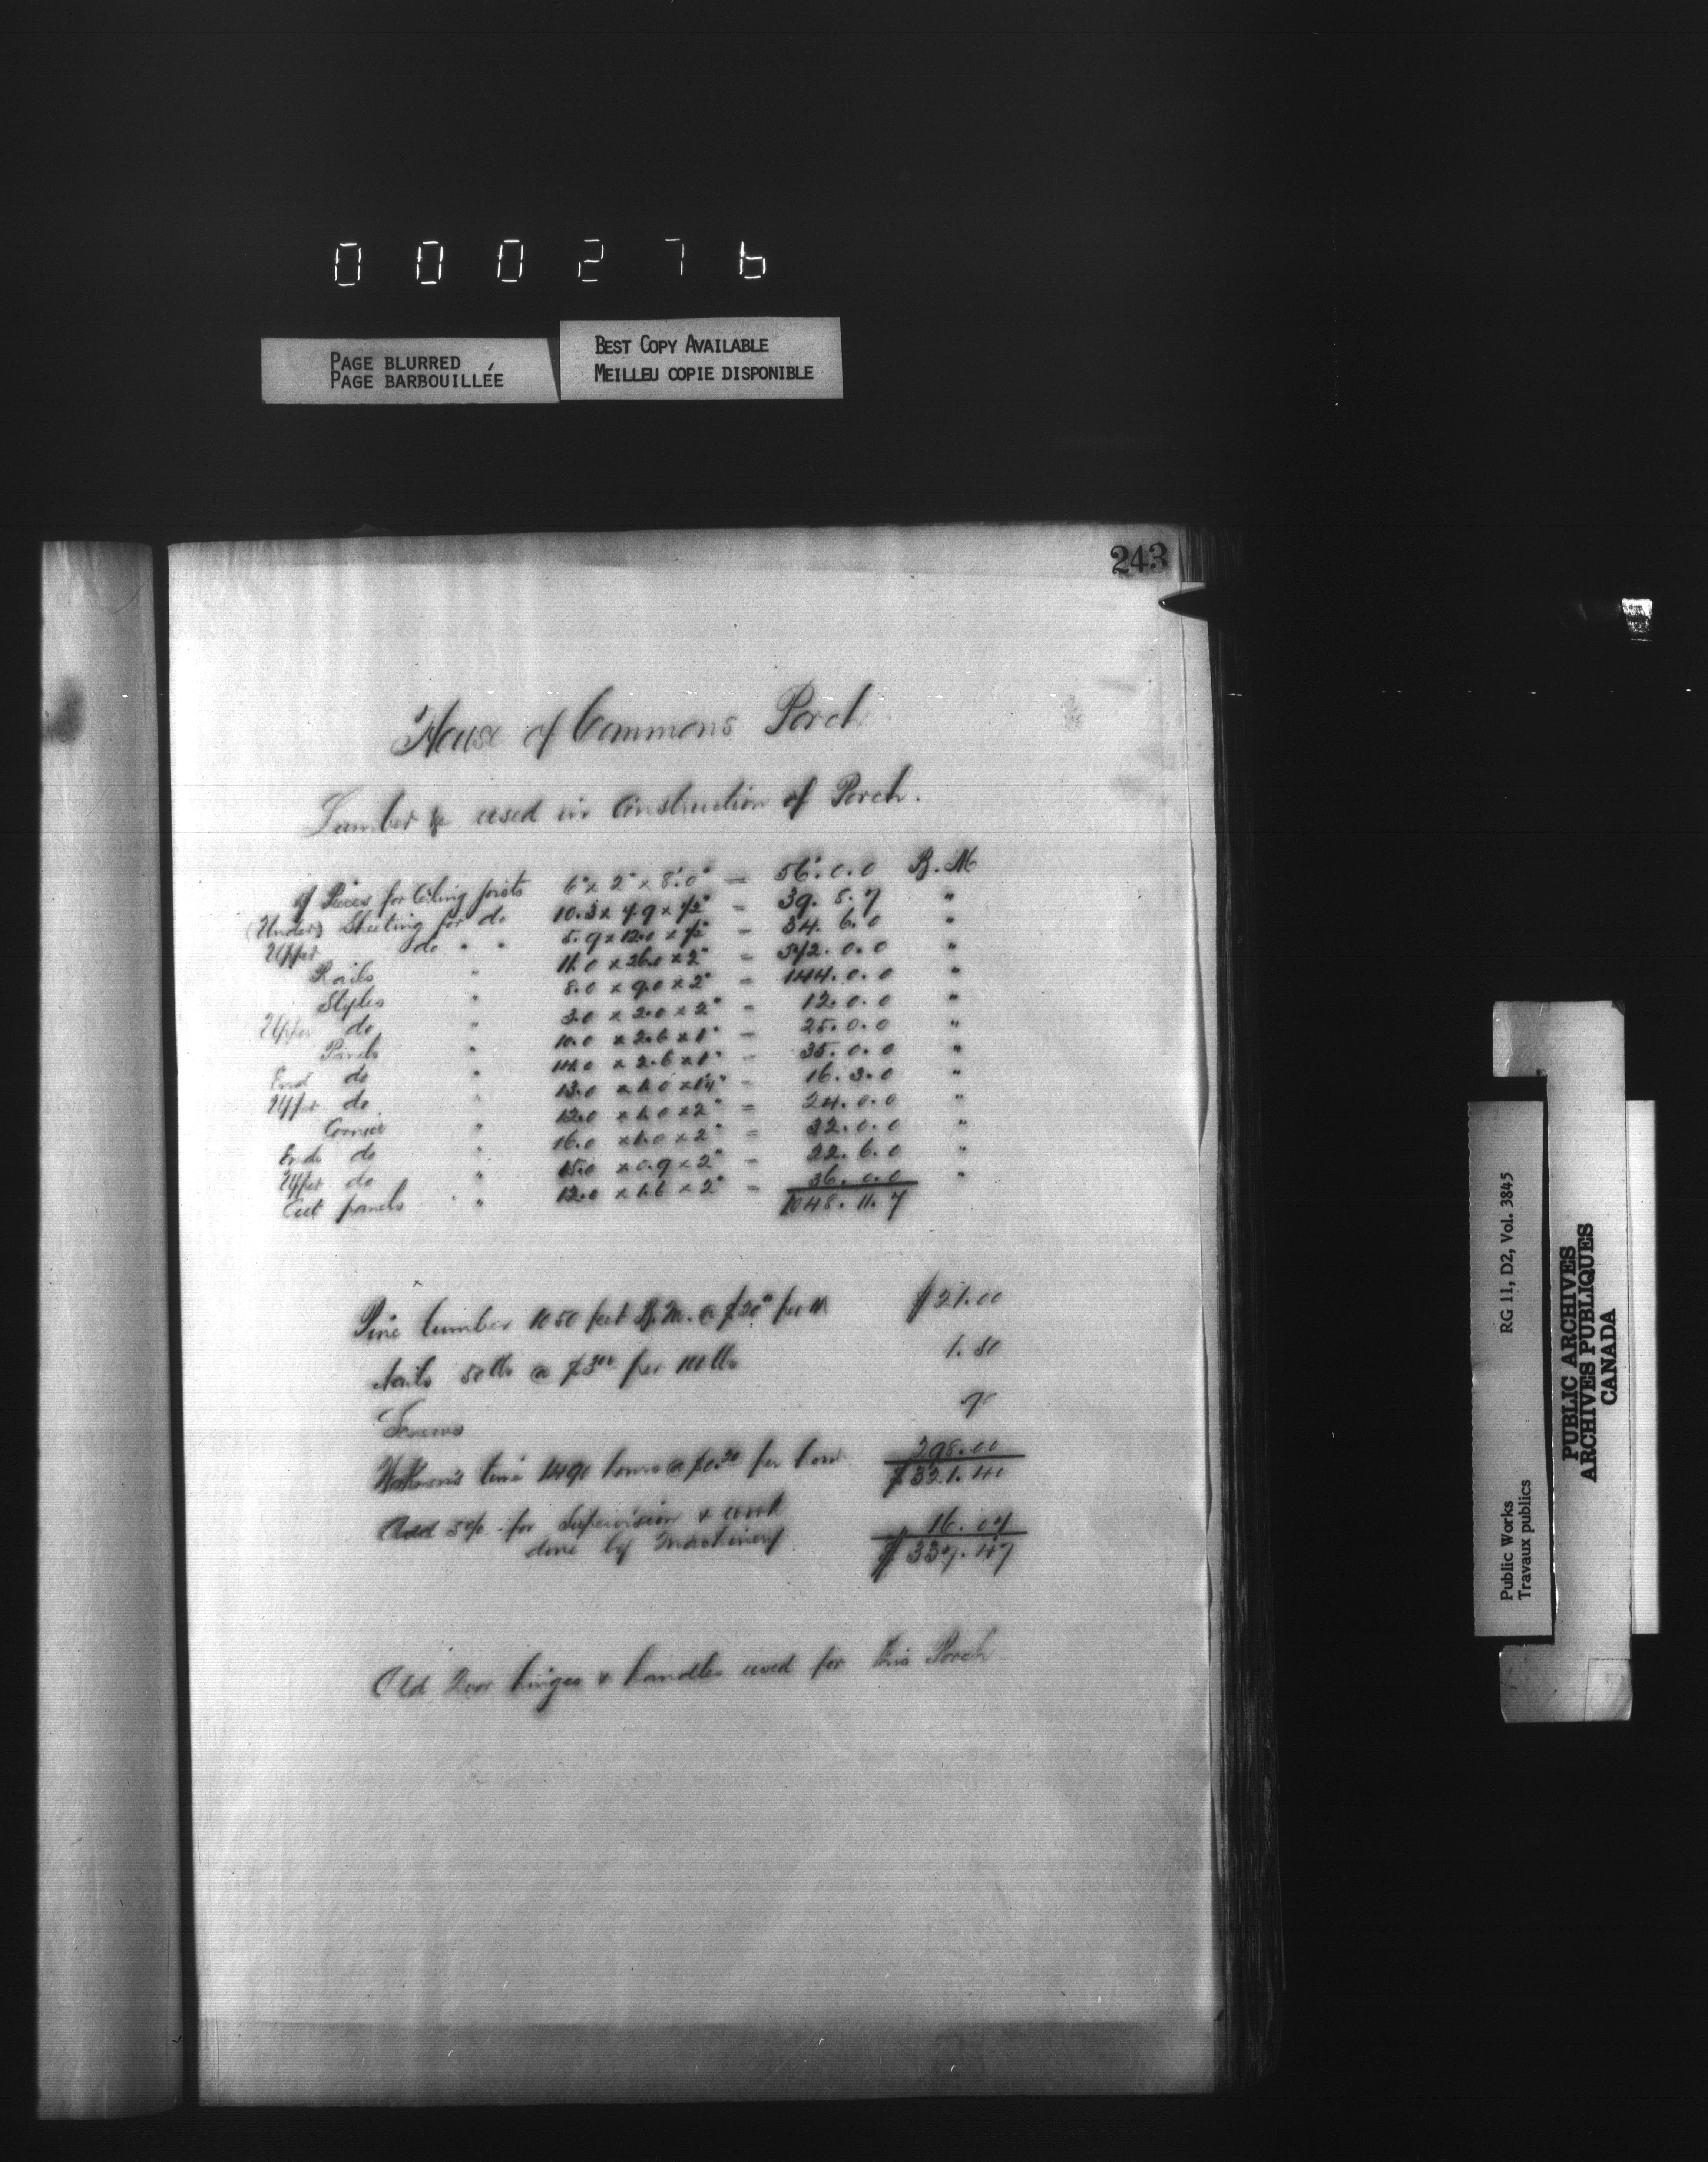 000276
PAGE BLURRED
PAGE BARBOUILLÉE
BEST COPY AVAILABLE
MEILLEU COPIE DISPONIBLE
243
House of Commons Porch
Lumber &c used in Construction of Porch.
7 Pieces for Ceiling joists 6" x 2" x 8'.0" = 56'.0.0 B.M
(Under) Sheeting for do 10.3 x 7.9 x 1/2" = 39.8.7 "
Upper do " " 5.9 x 12.0 x 1/2" = 34.6.0 "
Rails " 11.0 x 26.0 x 2" = 572.0.0 "
Styles " 8.0 x 9.0 x 2" = 144.0.0 "
Upper do " 3.0 x 2.0 x 2" = 12.0.0 "
Panels " 10.0 x 2.6 x 1" = 25.0.0 "
End do " 14.0 x 2.6 x 1" = 35.0.0 "
Upper do " 13.0 x 1.0 x 1¼" = 16.3.0 "
Cornice " 12.0 x 1.0 x 2" = 24.0.0 "
Ends do " 16.0 x 1.0 x 2" = 32.0.0 "
Upper do " 15.0 x 0.9 x 2" = 22.6.0 "
Cut panels " " 12.0 x 1.6 x 2" = 36.0.0 "
1048.11.7
Pine lumber 1050 feet B.M. @ $20.00 per M $21.00
Nails 50 lbs @ $3.00 per 100 lbs 1.50
Screws 90
Workmen's time 1490 hours @ $0.20 per hour 298.00
$321.40
Add 5% for Supervision & work
done by Machinery 16.07
$337.47
Old Door hinges & handles used for this Porch
RG 11, D2, Vol. 3845
Public Works
Travaux publics
PUBLIC ARCHIVES
ARCHIVES PUBLIQUES
CANADA